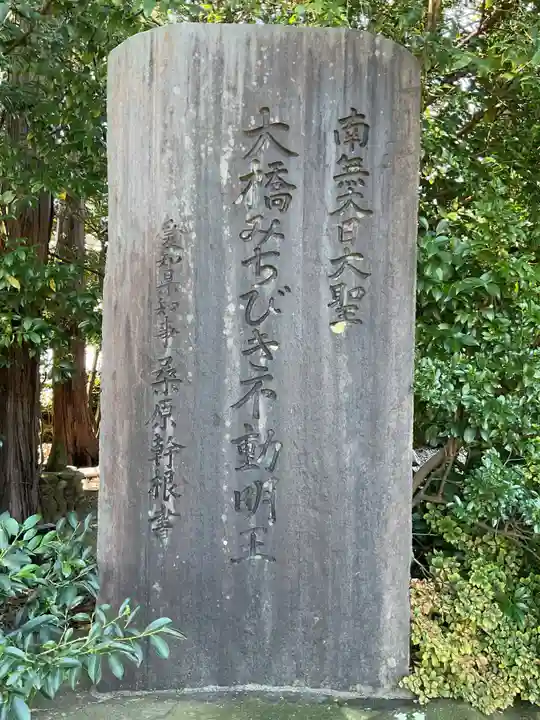 南無大日大聖
大橋みちびき不動明王
愛知県知事 桑原幹根書